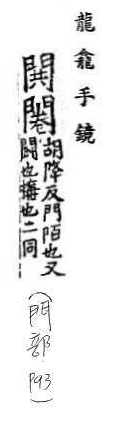 龍龕手鏡
閧闀胡降反門陌也又
闘也也二同
(門部 P93)